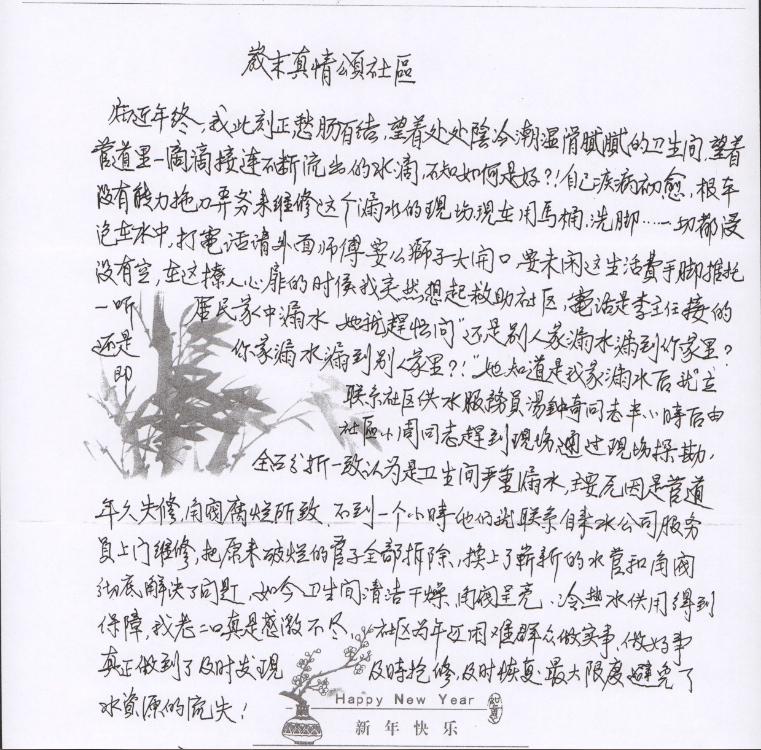 歲末真情頌社區
临近年终,我此刻正愁肠百结,望着处处陰冷潮湿滑腻腻的卫生间,望着
管道里一滴滴接连不断流出的水滴,不知如何是好?!自己疾病初愈,根本
没有能力拖刀弄斧来维修这个漏水的現场,現在用馬桶.洗脚……一切都浸
泡在水中,打電话请外面师傅要么獅子大開口要末闲这生活費手脚推托
没有空,在这撩人心扉的时候我突然想起救助社区,電话是李主任接的
一听 居民家中漏水 她就趕忙问"还是别人家漏水漏到你家里?
还是 你家漏水漏到别人家里?!"她知道是我家漏水后就立
即 联系社区供水服務員湯鈡奇同志半小時后由
社區小周同志趕到現场通过現场探勘,
全面分折一致认为是卫生间严重漏水,主要原因是管道
年久失修,角阀腐烂所致.不到一个小時他们就联系自来水公司服务
員上门维修,把原来破烂的管子全部拆除,换上了嶄新的水管和角阀
彻底解决了问题,如今卫生间清洁干燥,角阀呈亮.冷热水供用得到
保障,我老二口真是感激不尽、社区为年迈困难群众做实事,做好事
真正做到了及时发現 及時抢修,及时恢复最大限度避免了
水資源的流失!
Happy New Year
新年快乐